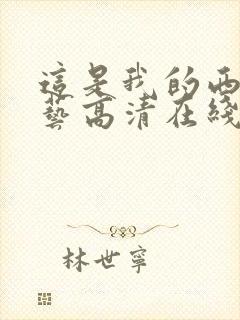 這是我的西
藝高清在綫
林世寧